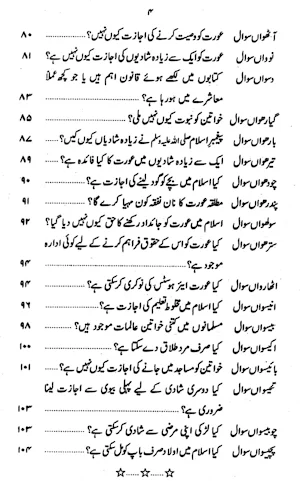 ۴
آٹھواں سوال عورت کو وصیت کرنے کی اجازت کیوں نہیں؟ ۸۰
نوواں سوال عورت کو ایک سے زیادہ شادیوں کی اجازت کیوں نہیں ہے؟ ۸۱
دسواں سوال کتابوں میں لکھے ہوئے قانون اہم ہیں یا جو کچھ عملاً
معاشرے میں ہو رہا ہے؟ ۸۳
گیارھواں سوال خواتین کو نبوت کیوں نہیں ملی؟ ۸۵
بارھواں سوال پیغمبر اسلام صلی اللہ علیہ وسلم نے زیادہ شادیاں کیوں کیں؟ ۸۷
تیرھواں سوال ایک سے زیادہ شادیوں میں عورت کا کیا فائدہ ہے؟ ۸۹
چودھواں سوال کیا اسلام میں بچے کو گود لینے کی اجازت ہے؟ ۹۰
پندرھواں سوال مطلقہ عورت کا نان نفقہ کون مہیا کرے گا؟ ۹۱
سولھواں سوال اسلام میں عورت کو جائداد رکھنے کا حق کیوں نہیں دیا گیا؟ ۹۲
سترھواں سوال کیا عورت کو اس کے حقوق فراہم کرنے کے لیے کوئی ادارہ
موجود ہے؟ ۹۴
اٹھارواں سوال کیا عورت ایئر ہوسٹس کی نوکری کر سکتی ہے؟ ۹۴
انیسواں سوال کیا اسلام میں مخلوط تعلیم کی اجازت ہے؟ ۹۶
بیسواں سوال مسلمانوں میں کتنی خواتین عالمات موجود ہیں؟ ۹۸
اکیسواں سوال کیا صرف مرد طلاق دے سکتا ہے؟ ۱۰۰
بائیسواں سوال خواتین کو مساجد میں جانے کی اجازت کیوں نہیں ہے؟ ۱۰۱
تئیسواں سوال کیا دوسری شادی کے لیے پہلی بیوی سے اجازت لینا
ضروری ہے؟ ۱۰۳
چوبیسواں سوال کیا لڑکی اپنی مرضی سے شادی کر سکتی ہے؟ ۱۰۳
پچیسواں سوال کیا اسلام میں اولاد صرف باپ کو مل سکتی ہے؟ ۱۰۴